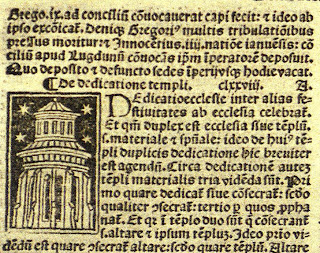 Grego.ix.ad conciliū cōuocauerat capi fecit: ⁊ ideo ab
ipso excōicat̄. Deniqꝫ Gregori⁹ multis tribulatiōibus
preſſus moritur: ⁊ Innocētius.iiij.natiōe ianuēſis: cō
ciliū apud Lugdunū cōuocās ip̄m īperatorē depoſuit.
Quo depoſito ⁊ defuncto ſedes īperij vſqꝫ hodie vacat.
¶ De dedicatione templi. clxxviij. A.
DEdicatio eccleſie inter alias fe-
ſtiuitates ab eccleſia celebrat̄.
Et qm̄ duplex est eccleſia ſiue tēplū.
ſ.materiale ⁊ ſpūale: ideo de hui⁹ tē-
pli duplicis dedicatione hic breuiter
est agendū. Circa dedicationē autez
tēpli materialis tria vidēda ſūt. Pri
mo quare dedicat̄ ſiue ↄſecrat̄: ſcd̄o
qualiter ↄſecrat̄: tertio ꝑ quos ꝓpha
nat̄. Et qꝛ ī tēplo duo ſūt q̄ cōſecrant̄
ſ.altare ⁊ ipſum tēplūꝫ. Ideo prīo vi-
dēdū est quare ↄſecrat̄ altare: ſcd̄o quare tēplū. Altare